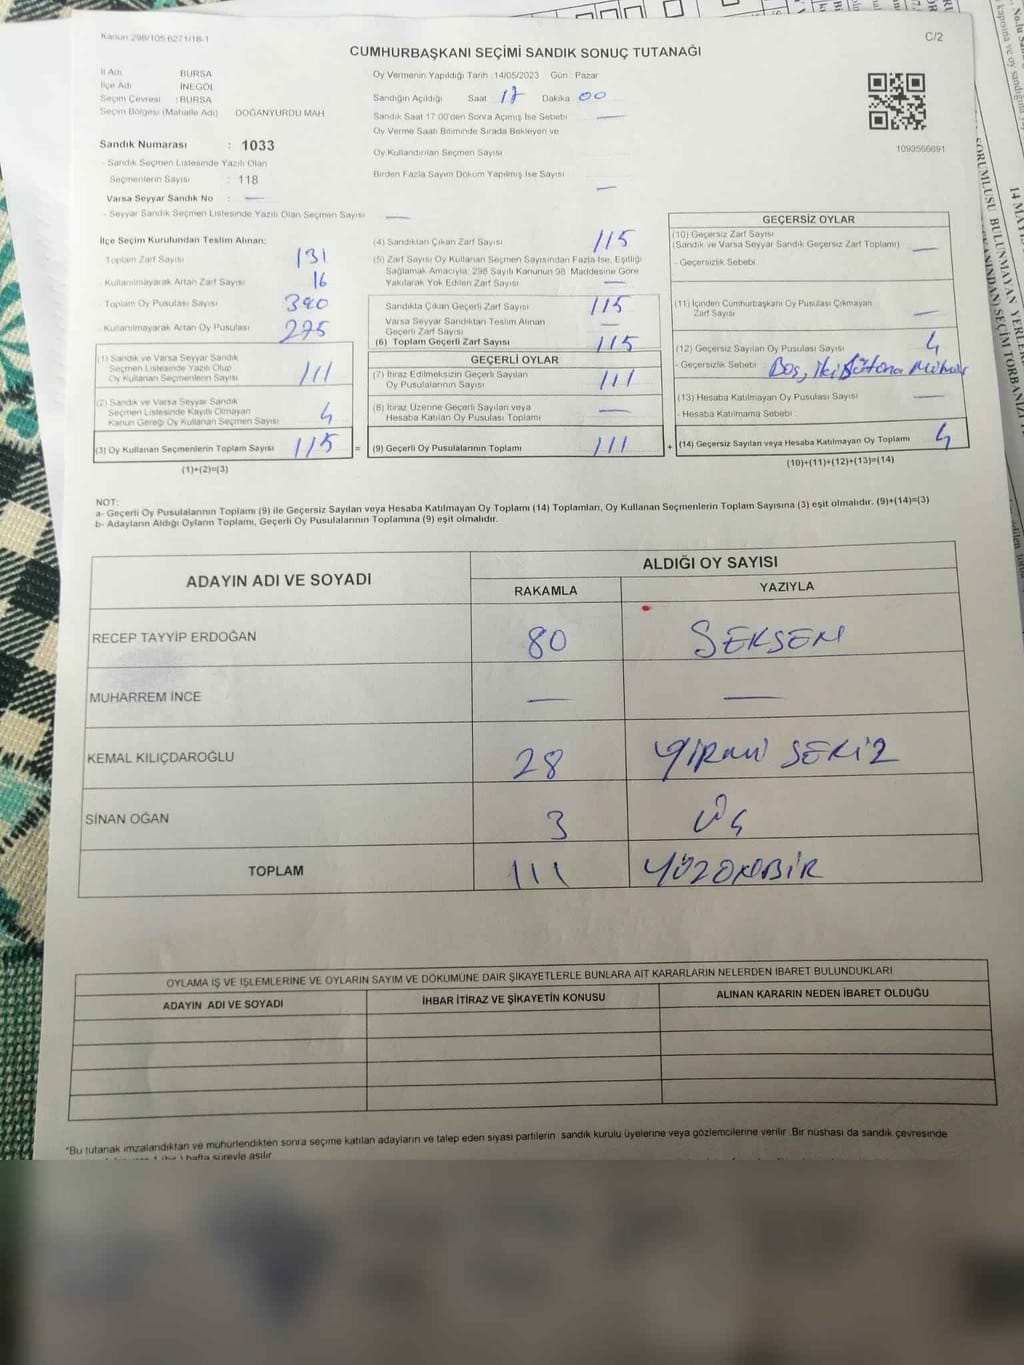 Kanun 298/105 6271/18-1
C/2
CUMHURBAŞKANI SEÇİMİ SANDIK SONUÇ TUTANAĞI
İl Adı BURSA
İlçe Adı İNEGÖL
Seçim Çevresi : BURSA
Seçim Bölgesi (Mahalle Adı) DOĞANYURDU MAH
Sandık Numarası : 1033
- Sandık Seçmen Listesinde Yazılı Olan
Seçmenlerin Sayısı : 118
Varsa Seyyar Sandık No : —
- Seyyar Sandık Seçmen Listesinde Yazılı Olan Seçmen Sayısı —
Oy Vermenin Yapıldığı Tarih : 14/05/2023 Gün : Pazar
Sandığın Açıldığı Saat 17 Dakika 00
Sandık Saat 17:00'den Sonra Açımış İse Sebebi —
Oy Verme Saati Bitiminde Sırada Bekleyen ve
Oy Kullandırılan Seçmen Sayısı
Birden Fazla Sayım Döküm Yapılmış İse Sayısı —
1093566691
İlçe Seçim Kurulundan Teslim Alınan:
Toplam Zarf Sayısı 131
- Kullanılmayarak Artan Zarf Sayısı 16
- Toplam Oy Pusulası Sayısı 390
- Kullanılmayarak Artan Oy Pusulası 275
(1) Sandık ve Varsa Seyyar Sandık
Seçmen Listesinde Yazılı Olup
Oy Kullanan Seçmenlerin Sayısı 111
(2) Sandık ve Varsa Seyyar Sandık
Seçmen Listesinde Kayıtlı Olmayan
Kanun Gereği Oy Kullanan Seçmen Sayısı 4
(3) Oy Kullanan Seçmenlerin Toplam Sayısı 115 =
(1)+(2)=(3)
(4) Sandıktan Çıkan Zarf Sayısı 115
(5) Zarf Sayısı Oy Kullanan Seçmen Sayısından Fazla İse, Eşitliği
Sağlamak Amacıyla, 298 Sayılı Kanunun 98. Maddesine Göre
Yakılarak Yok Edilen Zarf Sayısı —
Sandıkta Çıkan Geçerli Zarf Sayısı 115
Varsa Seyyar Sandıktan Teslim Alınan
Geçerli Zarf Sayısı —
(6) Toplam Geçerli Zarf Sayısı 115
GEÇERLİ OYLAR
(7) İtiraz Edilmeksizin Geçerli Sayılan
Oy Pusulalarının Sayısı 111
(8) İtiraz Üzerine Geçerli Sayılan veya
Hesaba Katılan Oy Pusulası Toplamı —
(9) Geçerli Oy Pusulalarının Toplamı 111 +
GEÇERSİZ OYLAR
(10) Geçersiz Zarf Sayısı
(Sandık ve Varsa Seyyar Sandık Geçersiz Zarf Toplamı) —
- Geçersizlik Sebebi
(11) İçinden Cumhurbaşkanı Oy Pusulası Çıkmayan
Zarf Sayısı —
(12) Geçersiz Sayılan Oy Pusulası Sayısı 4
- Geçersizlik Sebebi Boş, İki Sütuna Mühür
(13) Hesaba Katılmayan Oy Pusulası Sayısı —
- Hesaba Katılmama Sebebi
(14) Geçersiz Sayılan veya Hesaba Katılmayan Oy Toplamı 4
(10)+(11)+(12)+(13)=(14)
NOT:
a- Geçerli Oy Pusulalarının Toplamı (9) ile Geçersiz Sayılan veya Hesaba Katılmayan Oy Toplamı (14) Toplamları, Oy Kullanan Seçmenlerin Toplam Sayısına (3) eşit olmalıdır. (9)+(14)=(3)
b- Adayların Aldığı Oyların Toplamı, Geçerli Oy Pusulalarının Toplamına (9) eşit olmalıdır.
ADAYIN ADI VE SOYADI ALDIĞI OY SAYISI
RAKAMLA YAZIYLA
RECEP TAYYİP ERDOĞAN 80 SEKSEN
MUHARREM İNCE — —
KEMAL KILIÇDAROĞLU 28 YİRMİ SEKİZ
SİNAN OĞAN 3 ÜÇ
TOPLAM 111 YÜZONBİR
OYLAMA İŞ VE İŞLEMLERİNE VE OYLARIN SAYIM VE DÖKÜMÜNE DAİR ŞİKAYETLERLE BUNLARA AİT KARARLARIN NELERDEN İBARET BULUNDUKLARI
ADAYIN ADI VE SOYADI İHBAR İTİRAZ VE ŞİKAYETİN KONUSU ALINAN KARARIN NEDEN İBARET OLDUĞU
*Bu tutanak imzalandıktan ve mühürlendikten sonra seçime katılan adayların ve talep eden siyasi partilerin sandık kurulu üyelerine veya gözlemcilerine verilir. Bir nüshası da sandık çevresinde
1 (bir) hafta süreyle asılır